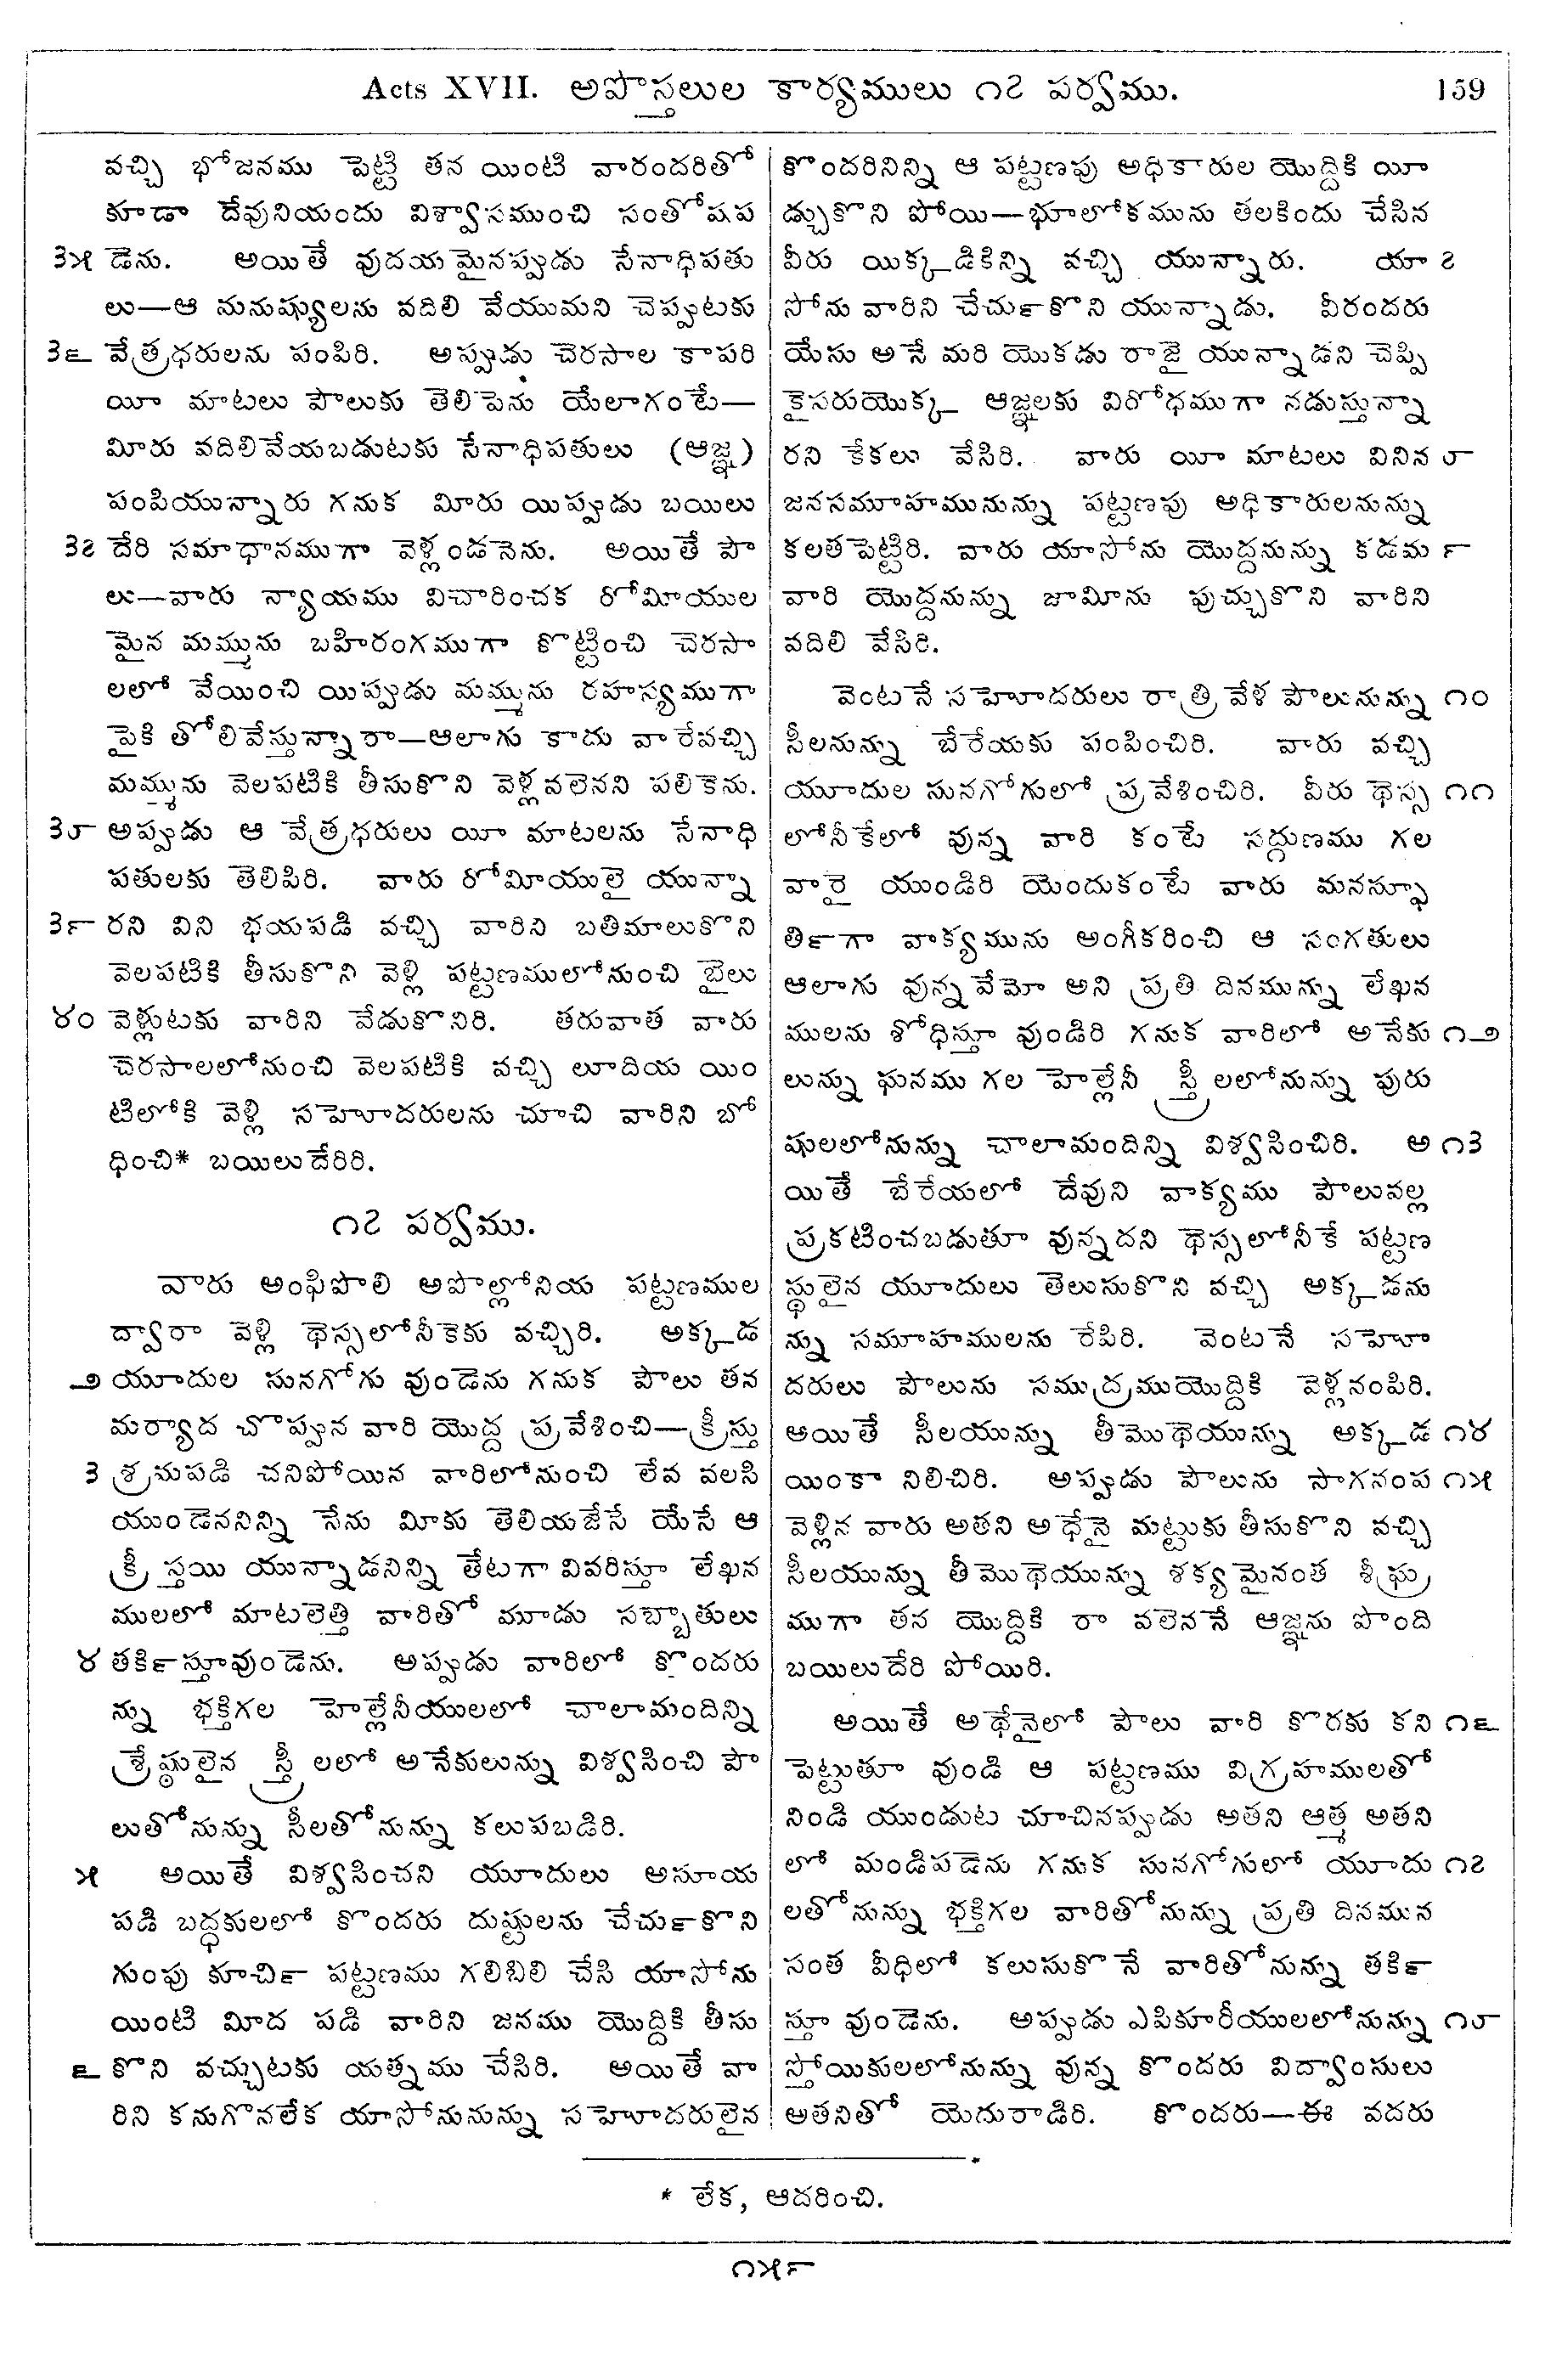 Acts XVII. అపొస్తలుల కార్యములు ౧౭ పర్వము. 159
వచ్చి భోజనము పెట్టి తన యింటి వారందరితో
కూడా దేవునియందు విశ్వాసముంచి సంతోషప
౩౫ డెను. అయితే వుదయమైనప్పుడు సేనాధిపతు
లు—ఆ నునుష్యులను వదిలి వేయుమని చెప్పుటకు
౩౬ వేత్రధరులను పంపిరి. అప్పుడు చెరసాల కాపరి
యీ మాటలు పౌలుకు తెలిపెను యేలాగంటే—
మీరు వదిలివేయబడుటకు సేనాధిపతులు (ఆజ్ఞ)
పంపియున్నారు గనుక మీరు యిప్పుడు బయిలు
౩౭ దేరి సమాధానముగా వెళ్లండనెను. అయితే పౌ
లు—వారు న్యాయము విచారించక రోమీయుల
మైన మమ్మును బహిరంగముగా కొట్టించి చెరసా
లలో వేయించి యిప్పుడు మమ్మును రహస్యముగా
పైకి తోలివేస్తున్నారా—ఆలాగు కాదు వారేవచ్చి
మమ్మును వెలపటికి తీసుకొని వెళ్లవలెనని పలికెను.
౩౮ అప్పుడు ఆ వేత్రధరులు యీ మాటలను సేనాధి
పతులకు తెలిపిరి. వారు రోమీయులై యున్నా
౩౯ రని విని భయపడి వచ్చి వారిని బతిమాలుకొని
వెలపటికి తీసుకొని వెళ్లి పట్టణములోనుంచి బైలు
౪౦ వెళ్లుటకు వారిని వేడుకొనిరి. తరువాత వారు
చెరసాలలోనుంచి వెలపటికి వచ్చి లూదియ యిం
టిలోకి వెళ్లి సహోదరులను చూచి వారిని బో
ధించి* బయిలుదేరిరి.
౧౭ పర్వము.
వారు అంఫిపొలి అపొల్లోనియ పట్టణముల
ద్వారా వెళ్లి థెస్సలోనీకెకు వచ్చిరి. అక్కడ
౨ యూదుల సునగోగు వుండెను గనుక పౌలు తన
మర్యాద చొప్పున వారి యొద్ద ప్రవేశించి—క్రీస్తు
౩ శ్రమపడి చనిపోయిన వారిలోనుంచి లేవ వలసి
యుండెననిన్ని నేను మీకు తెలియజేసే యేసే ఆ
క్రీస్తయి యున్నాడనిన్ని తేటగా వివరిస్తూ లేఖన
ములలో మాటలెత్తి వారితో మూడు సబ్బాతులు
౪ తర్కిస్తూవుండెను. అప్పుడు వారిలో కొందరు
న్ను భక్తిగల హెల్లేనీయులలో చాలామందిన్ని
శ్రేష్ఠులైన స్త్రీలలో అనేకులున్ను విశ్వసించి పౌ
లుతోనున్ను సీలతోనున్ను కలుపబడిరి.
౫ అయితే విశ్వసించని యూదులు అసూయ
పడి బద్ధకులలో కొందరు దుష్టులను చేర్చుకొని
గుంపు కూర్చి పట్టణము గలిబిలి చేసి యాసోను
యింటి మీద పడి వారిని జనము యొద్దికి తీసు
౬ కొని వచ్చుటకు యత్నము చేసిరి. అయితే వా
రిని కనుగొనలేక యాసోనునున్ను సహోదరులైన
కొందరినిన్ని ఆ పట్టణపు అధికారుల యొద్దికి యీ
డ్చుకొని పోయి—భూలోకమును తలకిందు చేసిన
వీరు యిక్కడికిన్ని వచ్చి యున్నారు. యా ౭
సోను వారిని చేర్చుకొని యున్నాడు. వీరందరు
యేసు అనే మరి యొకడు రాజై యున్నాడని చెప్పి
కైసరుయొక్క ఆజ్ఞలకు విరోధముగా నడుస్తున్నా
రని కేకలు వేసిరి. వారు యీ మాటలు వినిన ౮
జనసమూహమునున్ను పట్టణపు అధికారులనున్ను
కలతపెట్టిరి. వారు యాసోను యొద్దనున్ను కడమ ౯
వారి యొద్దనున్ను జామీను పుచ్చుకొని వారిని
వదిలి వేసిరి.
వెంటనే సహోదరులు రాత్రి వేళ పౌలునున్ను ౧౦
సీలనున్ను బేరేయకు పంపించిరి. వారు వచ్చి
యూదుల సునగోగులో ప్రవేశించిరి. వీరు థెస్స ౧౧
లోనీకేలో వున్న వారి కంటే సద్గుణము గల
వారై యుండిరి యెందుకంటే వారు మనస్ఫూ
ర్తిగా వాక్యమును అంగీకరించి ఆ సంగతులు
ఆలాగు వున్నవేమో అని ప్రతి దినమున్ను లేఖన
ములను శోధిస్తూ వుండిరి గనుక వారిలో అనేకు ౧౨
లున్ను ఘనము గల హెల్లేనీ స్త్రీలలోనున్ను పురు
షులలోనున్ను చాలామందిన్ని విశ్వసించిరి. అ ౧౩
యితే బేరేయలో దేవుని వాక్యము పౌలువల్ల
ప్రకటించబడుతూ వున్నదని థెస్సలోనీకే పట్టణ
స్థులైన యూదులు తెలుసుకొని వచ్చి అక్కడను
న్ను సమూహములను రేపిరి. వెంటనే సహో
దరులు పౌలును సముద్రముయొద్దికి వెళ్లనంపిరి.
అయితే సీలయున్ను తీమొథెయున్ను అక్కడ ౧౪
యింకా నిలిచిరి. అప్పుడు పౌలును సాగనంప ౧౫
వెళ్లిన వారు అతని అథేనై మట్టుకు తీసుకొని వచ్చి
సీలయున్ను తీమొథెయున్ను శక్యమైనంత శీఘ్ర
ముగా తన యొద్దికి రా వలెననే ఆజ్ఞను పొంది
బయిలుదేరి పోయిరి.
అయితే అథేనైలో పౌలు వారి కొరకు కని ౧౬
పెట్టుతూ వుండి ఆ పట్టణము విగ్రహములతో
నిండి యుండుట చూచినప్పుడు అతని ఆత్మ అతని
లో మండిపడెను గనుక సునగోగులో యూదు ౧౭
లతోనున్ను భక్తిగల వారితోనున్ను ప్రతి దినమున
సంత వీధిలో కలుసుకొనే వారితోనున్ను తర్కి
స్తూ వుండెను. అప్పుడు ఎపికూరీయులలోనున్ను ౧౮
స్తోయికులలోనున్ను వున్న కొందరు విద్వాంసులు
అతనితో యెదురాడిరి. కొందరు—ఈ వదరు
* లేక, ఆదరించి.
౧౫౯